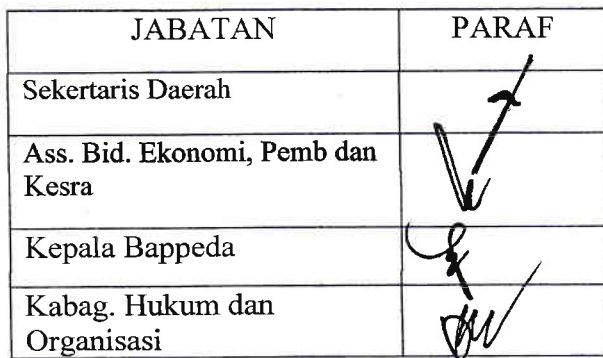 JABATAN PARAF
Sekertaris Daerah
Ass. Bid. Ekonomi, Pemb dan
Kesra
Kepala Bappeda
Kabag. Hukum dan
Organisasi